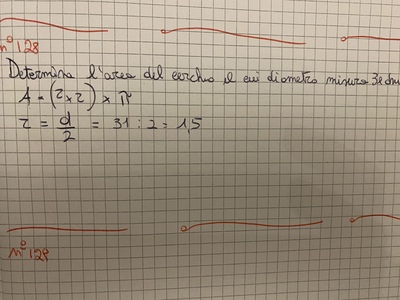 n° 128
Determina l'area del cerchio il cui diametro misura
A = (r × r) × π
r = d/2 = 31 : 2 = 1,5
n° 129